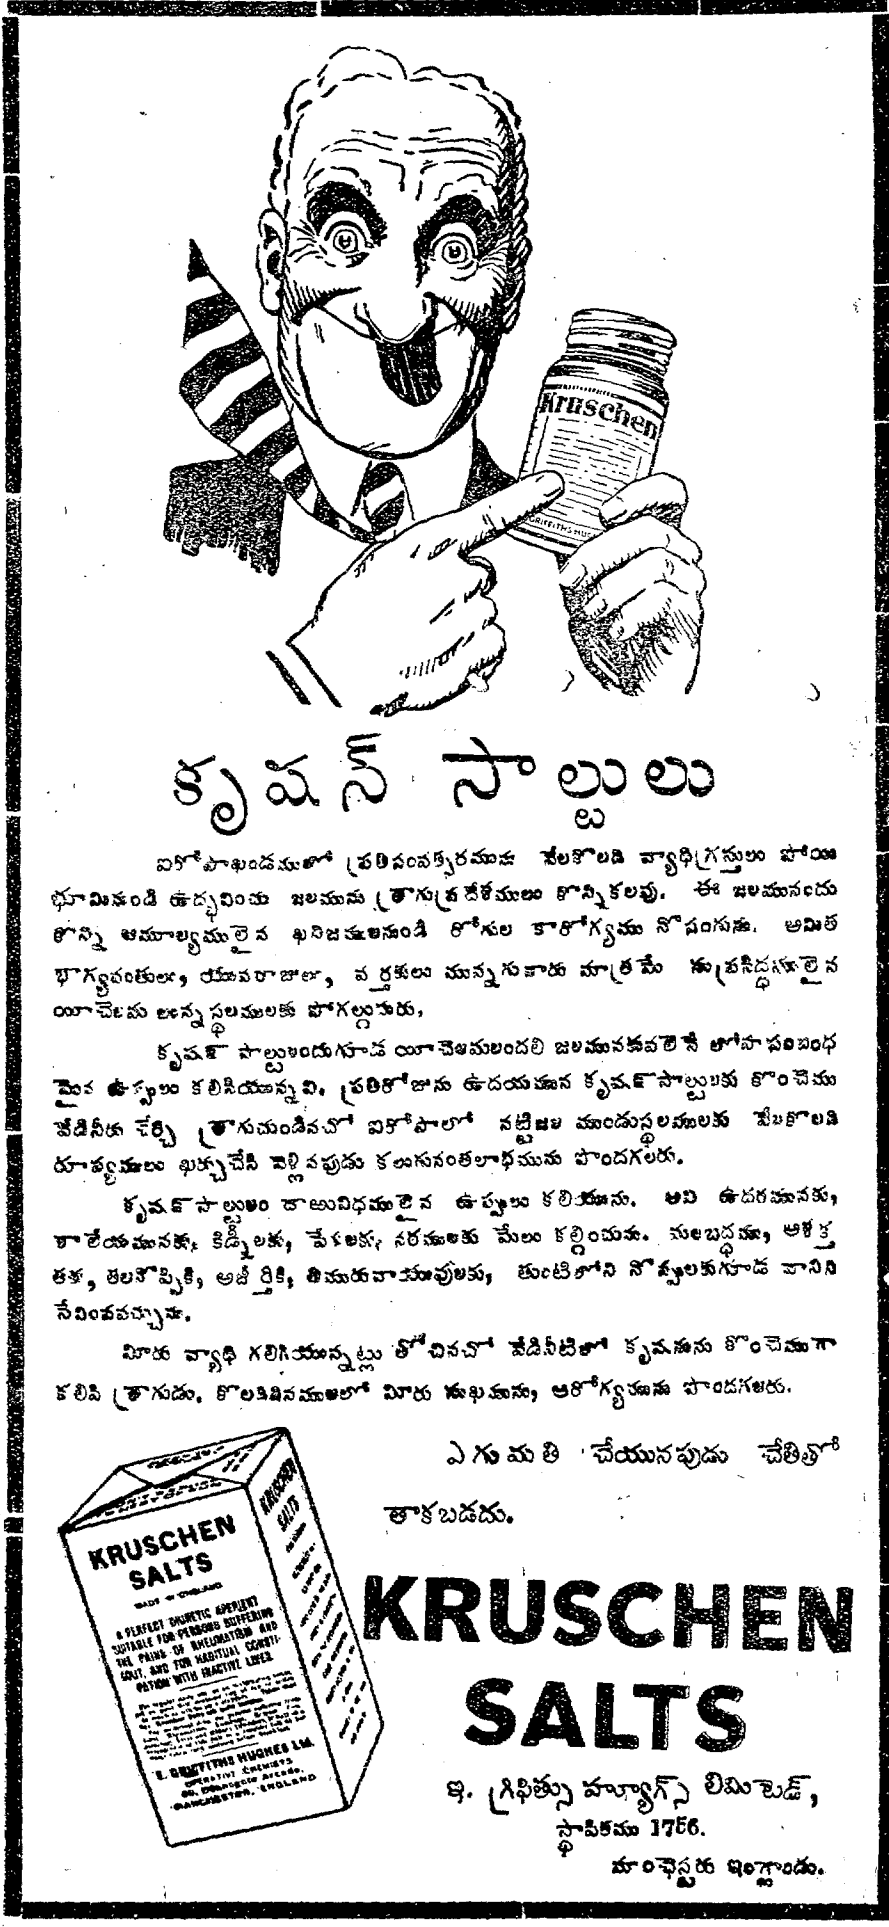 Kruschen
GRIFFITHS HUGHES
కృషన్ సాల్టులు
ఐరోపాఖండములో ప్రతిసంవత్సరమున వేలకొలది వ్యాధిగ్రస్తులు పోయి
భూమినుండి ఉద్భవించు జలమును త్రాగుప్రదేశములు కొన్నికలవు. ఈ జలమునందు
కొన్ని అమూల్యములైన ఖనిజములనుండి రోగుల కారోగ్యము నొసంగును. అమిత
భాగ్యవంతులు, యువరాజులు, వర్తకులు మున్నగువారు మాత్రమే సుప్రసిద్ధములైన
యీచెలమ లున్న స్థలములకు పోగల్గుదురు,
కృషన్ సాల్టులందుగూడ యీచెలమలందలి జలమునకువలెనే లోహ సంబంధ
మైన ఉప్పులు కలిసియున్నవి. ప్రతిరోజును ఉదయమున కృషన్ సాల్టులకు కొంచెము
వేడినీరు చేర్చి త్రాగుచుండినచో ఐరోపాలో నట్టిజల ముండుస్థలములకు వేలకొలది
రూప్యములు ఖర్చుచేసి వెళ్లినపుడు కలుగునంతలాభమును పొందగలరు.
కృషన్ సాల్టులు దాఱువిధములైన ఉప్పులు కలియును. అవి ఉదరమునకు,
కాలేయమునకు, కిడ్నీలకు, పేగులకు, నరములకు మేలు కల్గించును. మలబద్ధము, అశక్త
తకు, తలనొప్పికి, అజీర్తికి, తిమురువాయువులకు, తుంటిలోని నొప్పులకుగూడ వానిని
సేవింపవచ్చును.
మీరు వ్యాధి గలిగియున్నట్లు తోచినచో వేడినీటిలో కృషనును కొంచెముగా
కలిపి త్రాగుడు. కొలదిదినములలో మీరు సుఖమును, ఆరోగ్యమును పొందగలరు.
ఎగుమతి చేయునపుడు చేతితో
తాకబడదు.
KRUSCHEN
SALTS
MADE IN ENGLAND
A PERFECT DIURETIC APERIENT
SUITABLE FOR PERSONS SUFFERING
THE PAINS OF RHEUMATISM AND
GOUT, AND FOR HABITUAL CONSTI-
PATION WITH INACTIVE LIVER
E. GRIFFITHS HUGHES Ltd.
OPERATIVE CHEMISTS
MANCHESTER, ENGLAND
KRUSCHEN
SALTS
KRUSCHEN
SALTS
ఇ. గ్రిఫిత్సు హ్యూగ్స్ లిమిటెడ్,
స్థాపితము 1756.
మాంచెస్టరు ఇంగ్లాండు.